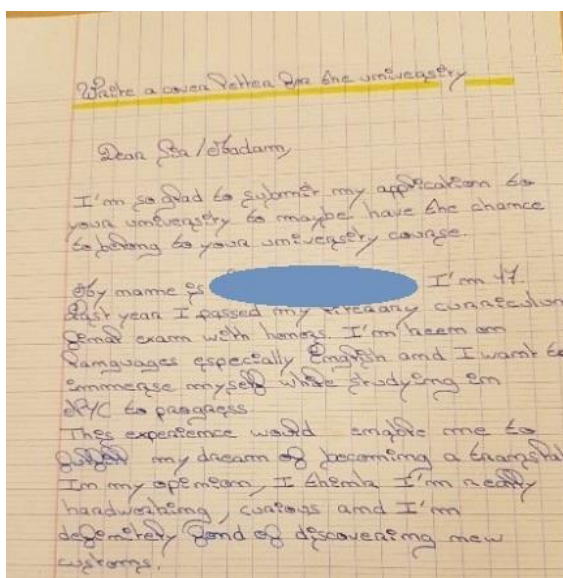 Write a cover letter for the university
Dear Sir / Madam,
I'm so glad to submit my application to
your university to maybe have the chance
to belong to your university course.
My name is I'm 17.
Last year I passed my literary curriculum
final exam with honors. I'm keen on
languages especially English and I want to
immerse myself while studying in
NYC to progress
This experience would enable me to
fulfill my dream of becoming a
In my opinion, I think I'm really
hardworking, curious and I'm
definitely fond of discovering new
customs.